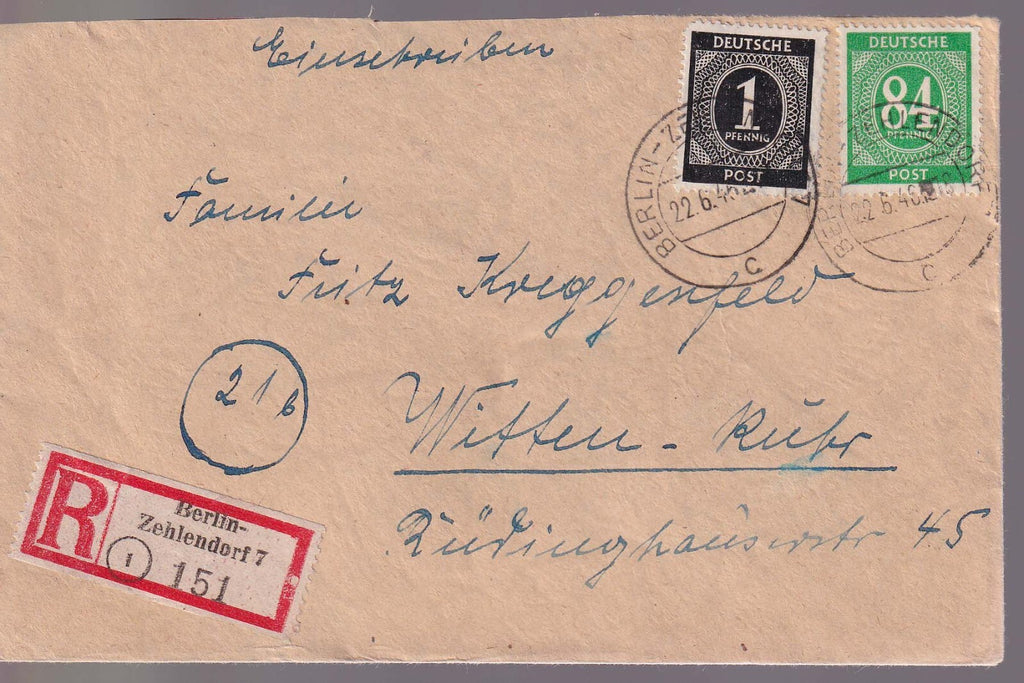 Einschreiben
DEUTSCHE
1
PFENNIG
POST
DEUTSCHE
84
PFENNIG
POST
BERLIN-ZE
22.6.46
c
BERLIN
22.6.46
c
Familie
Fritz Kreggenfeld
21b
Witten-Ruhr
Rüdinghauserstr 45
R
Berlin-
Zehlendorf 7
1
151